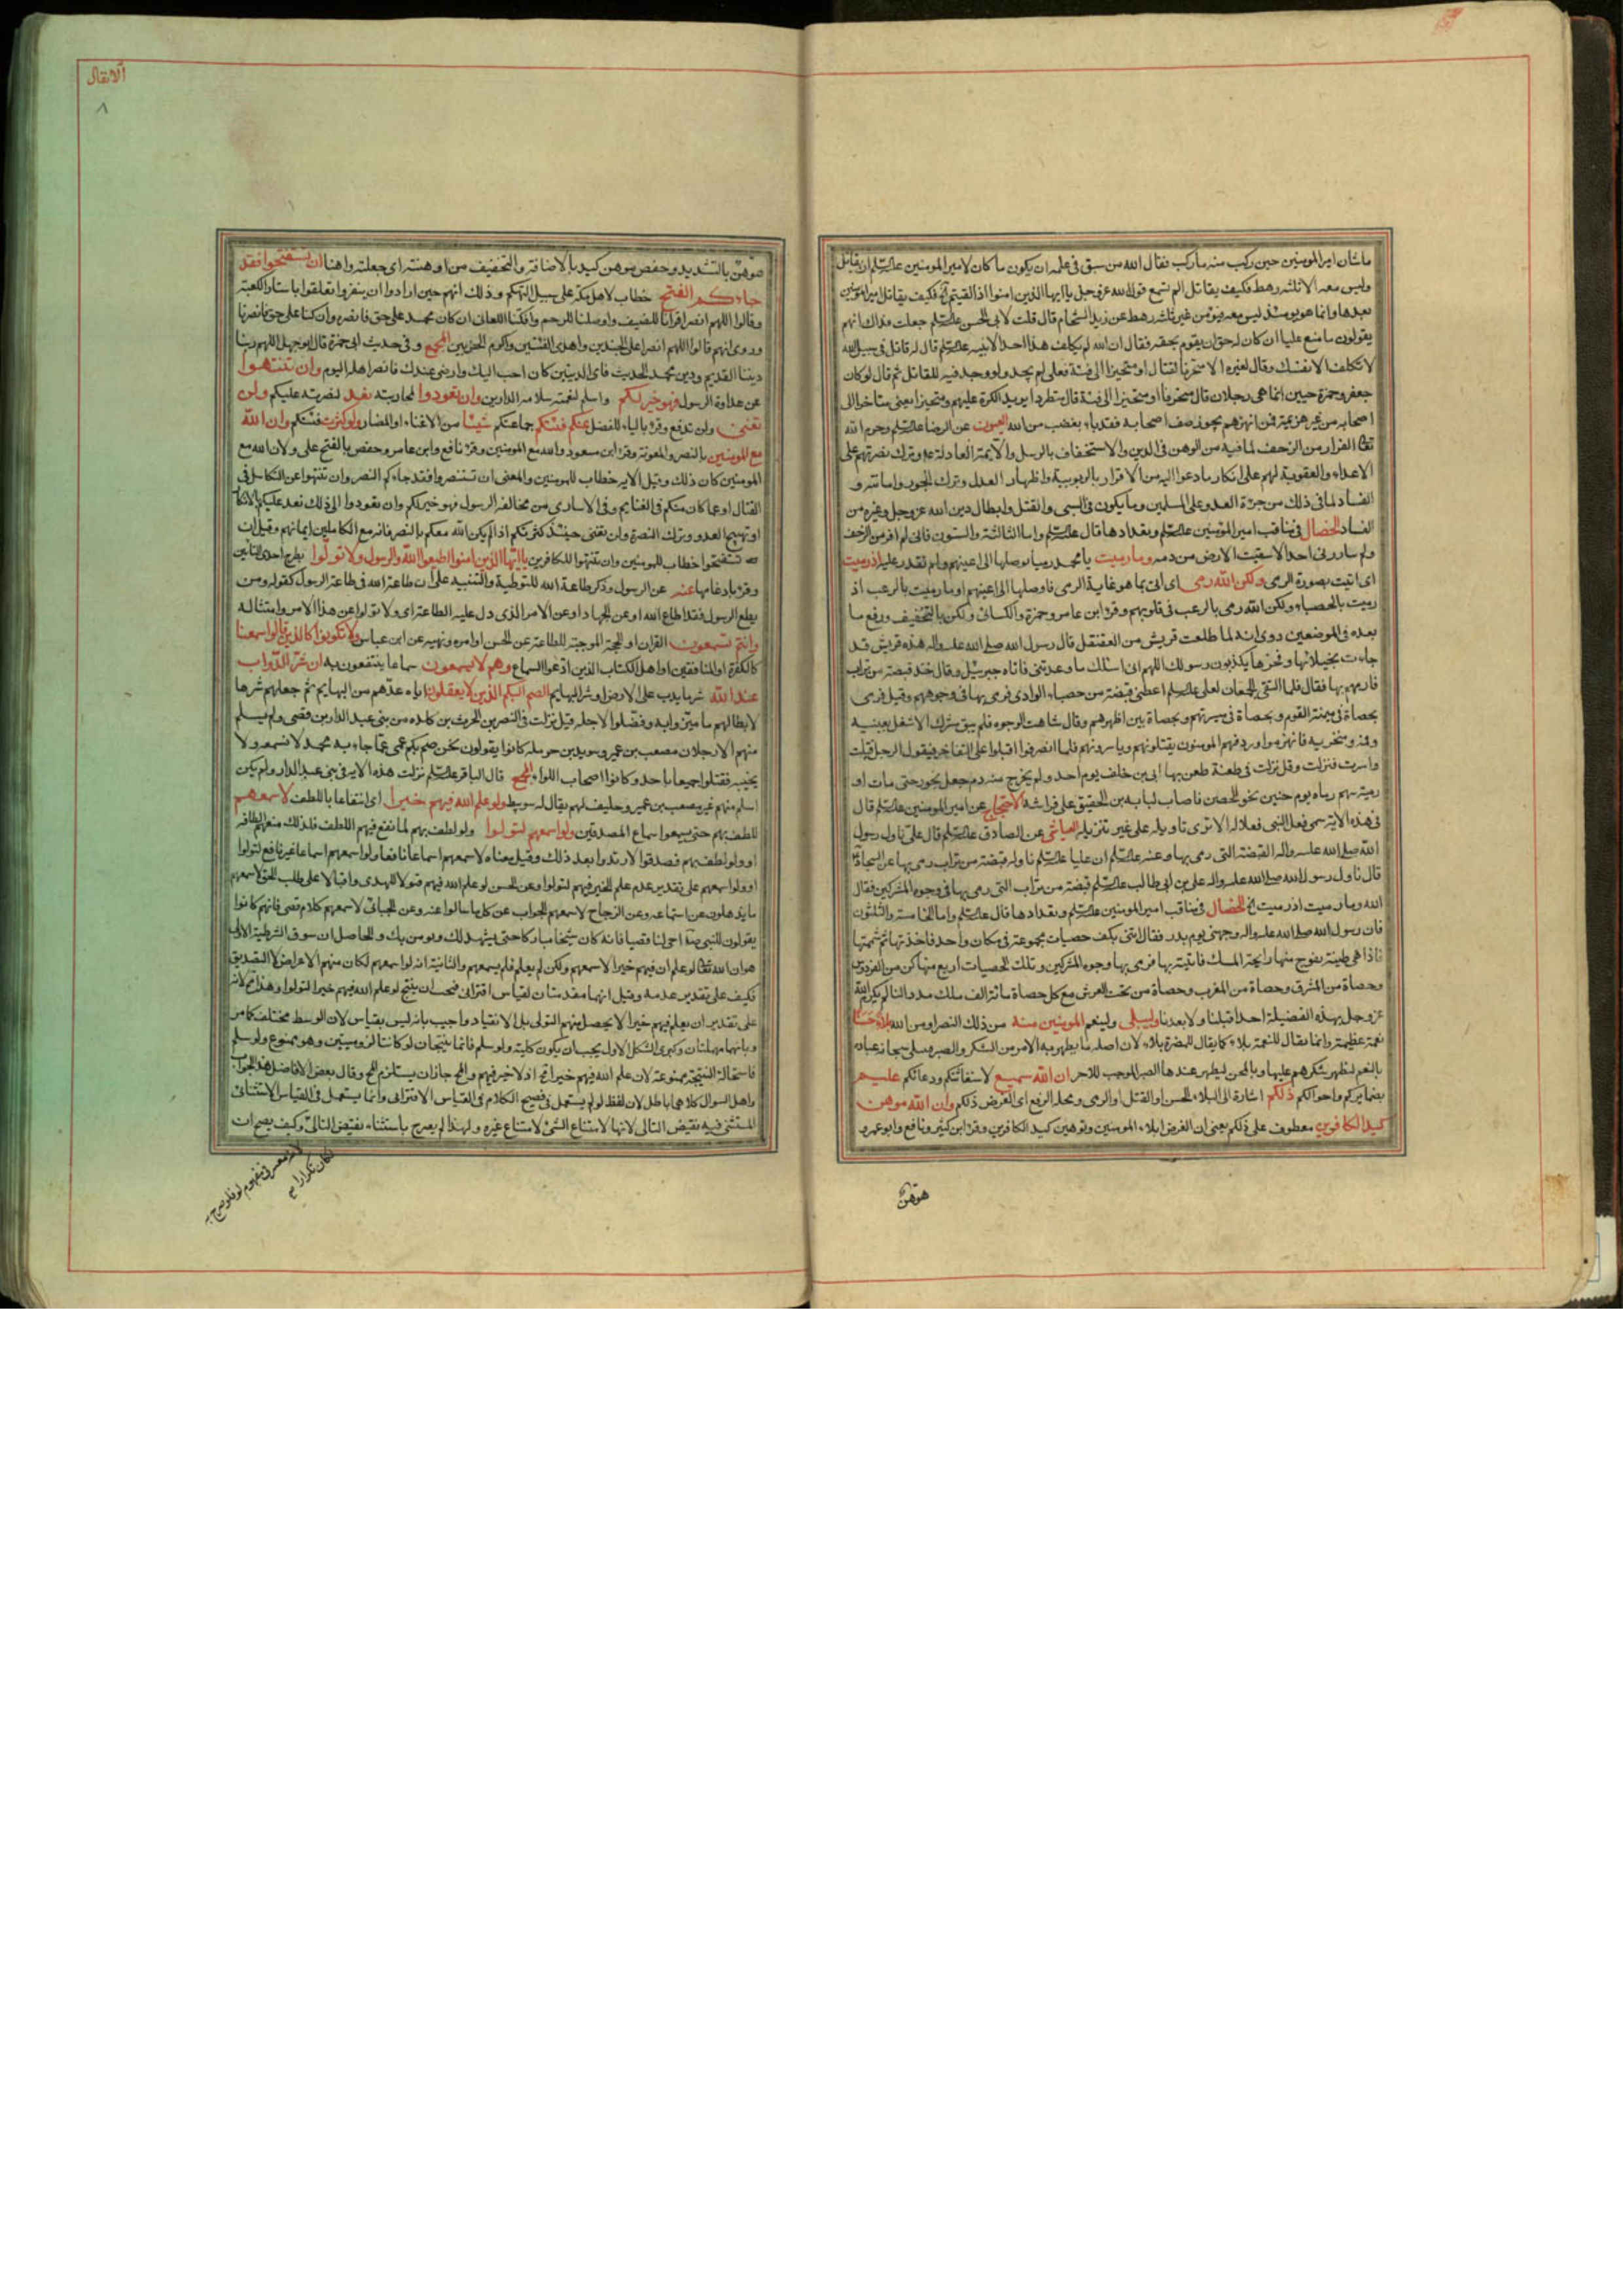 ما شان امير المؤمنين حين ركب منه ما ركب فقال الله من سبق فى علمه ان يكون ما كان لامير المؤمنين عليه السلم ان يقاتل
وليس معه الا ثلثه رهط فكيف يقاتل الم تسمع قول الله عز وجل يا ايها الذين امنوا اذا لقيتم فكيف يقاتل امير المؤمنين
بعد هذا وانما هو يومئذ ليس معه مؤمن غير ثلثه رهط عن زيد الشحام قال قلت لابى الحسن عليه السلم جعلت فداك انهم
يقولون ما منع عليا ان كان له حق ان يقوم بحقه فقال ان الله لم يكلف هذا احدا الا نبيه عليه السلم قال له قاتل فى سبيل الله
لا تكلف الا نفسك وقال لغيره الا متحرفا لقتال او متحيزا الى فئة فعلى لم يجد ولو وجد فيه للقاتل ثم قال لو كان
جعفر وحمزة حيين انما هى رجلان قال متحرفا او متحيزا الى فئة قال متطردا يريد الكرة عليهم ومتحيزا يعنى متاخرا الى
اصحابه من غير هزيمة فمن انهزم يجوز صف اصحابه فقد باء بغضب من الله العيون عن الرضا عليه السلم وحرم الله
الفرار من الزحف لما فيه من الوهن فى الدين والاستخفاف بالرسل والائمة العادلة وترك نصرتهم على
الاعداء والعقوبة لهم على انكار ما دعوا اليه من الاقرار بالربوبية واظهار العدل وترك الجور واماتته و
الفساد لما فى ذلك من جرأة العدو على المسلمين وما يكون فى السبى والقتل وابطال دين الله عز وجل وغيره من
الفساد الخصال فى مناقب امير المؤمنين عليه السلم وبعدادها قال عليه السلم واما الثالثة والستون فانى لم افر من الزحف
ولم يبارزنى احد الا سقيت الارض من دمه وما رميت يا محمد رميا توصلها الى اعينهم ولم تقدر عليه اذ رميت
اى اتيت بصورة الرمى ولكن الله رمى اى اتى بما هو غاية الرمى فاوصلها الى اعينهم او ما رميت بالرعب اذ
رميت بالحصباء ولكن الله رمى بالرعب فى قلوبهم وقرء ابن عامر وحمزة والكسائى ولكن بالتخفيف ورفع ما
بعده فى الموضعين روى انه لما طلعت قريش من العقنقل قال رسول الله صلى الله عليه واله هذه قريش قد
جاءت بخيلائها وفخرها يكذبون رسولك اللهم انى اسئلك ما وعدتنى فاتاه جبرئيل وقال خذ قبضة من تراب
فارمهم بها فقال فلما التقى الجمعان لعلى عليه السلم اعطنى قبضة من حصباء الوادى فرمى بها فى وجوههم وقيل فرمى
بحصاة فى ميمنة القوم وبحصاة فى ميسرتهم وبحصاة بين اظهرهم وقال شاهت الوجوه فلم يبق مشرك الا شغل بعينيه
وفمه ومنخريه فانهزموا وردفهم المؤمنون يقتلونهم وياسرونهم فلما انصرفوا اقبلوا على التفاخر فيقول الرجل قتلت
واسرت فنزلت وقيل نزلت فى طعنة طعن بها ابى بن خلف يوم احد ولم يخرج منه دم فجعل يخور حتى مات او
رمية سهم رماه يوم حنين نحو الحصن فاصاب لبابه بن الحقيق على فراشه الاحتجاج عن امير المؤمنين عليه السلم قال
فى هذه الاية سمى فعل النبى فعلا له الا ترى تاويله على غير تنزيله العياشى عن الصادق عليه السلم قال على ناول رسول
الله صلى الله عليه واله القبضة التى رمى بها وعنه عليه السلم ان عليا عليه السلم ناوله قبضة من تراب رمى بها عن السجاد
قال ناول رسول الله صلى الله عليه واله على بن ابى طالب عليه السلم قبضة من تراب التى رمى بها فى وجوه المشركين فقال
الله وما رميت اذ رميت الخصال فى مناقب امير المؤمنين عليه السلم وتعدادها قال عليه السلم واما الخامسة والثلثون
فان رسول الله صلى الله عليه واله وجهنى يوم بدر فقال ائتنى بكف حصيات مجموعة فى مكان واحد فاخذتها ثم شممتها
فاذا هى طيبة تفوح منها رايحة المسك فاتيته بها فرمى بها وجوه المشركين وتلك الحصيات اربع منها كن من الفردوس
وحصاة من المشرق وحصاة من المغرب وحصاة من تحت العرش مع كل حصاة مائة الف ملك مددا لنا لم يكرم الله
عز وجل بهذه الفضيلة احدا قبلنا ولا بعدنا وليبلى ولينعم المومنين منه من ذلك النصر او من الله بلاء حسنا
نعمة عظيمة وانما يقال للنعمة بلاء كما يقال للمضرة بلاء لان اصله ما يظهر به الامر من الشكر والصبر يبلى سبحانه عباده
بالنعم ليظهر شكرهم عليها وبالمحن ليظهر عندها الصبر الموجب للاجر ان الله سميع لاستغاثتكم ودعائكم عليم
بضمائركم واحوالكم ذلكم اشارة الى البلاء الحسن او القتل او الرمى ومحله الرفع اى الغرض ذلكم وان الله موهن
كيد الكافرين معطوف على ذلكم يعنى ان الغرض ابلاء المومنين وتوهين كيد الكافرين وقرء ابن كثير ونافع وابو عمرو
موهن
الانفال
٨
موهن بالتشديد وحفص موهن كيد بالاضافة والتخفيف من اوهنته اى جعلته واهنا ان تستفتحوا فقد
جاءكم الفتح خطاب لاهل مكة على سبيل التهكم وذلك انهم حين ارادوا ان ينفروا تعلقوا باستار الكعبة
وقالوا اللهم انصر اقرانا للضيف واوصلنا للرحم وافكنا للعانى ان كان محمد على حق فانصره وان كنا على حق فانصرنا
وروى انهم قالوا اللهم انصر اعلى الجندين واهدى الفئتين واكرم الحزبين المجمع وفى حديث ابى حمزة قال ابو جهل اللهم ربنا
ديننا القديم ودين محمد الحديث فاى الدينين كان احب اليك وارضى عندك فانصر اهله اليوم وان تنتهوا
عن عداوة الرسول فهو خير لكم واسلم لتضمنه سلامه الدارين وان تعودوا لمحاربته نعد لنصرته عليكم ولن
تغنى ولن تدفع وقرء بالياء للفصل عنكم فئتكم جماعتكم شيئا من الاغناء او المضار ولو كثرت فئتكم وان الله
مع المومنين بالنصر والمعونة وقرء ابن مسعود والله مع المومنين وقرء نافع وابن عامر وحفص بالفتح على ولان الله مع
المومنين كان ذلك وقيل الاية خطاب للمومنين والمعنى ان تستنصروا فقد جاءكم النصر وان تنتهوا عن التكاسل فى
القتال او عما كان منكم فى الغنايم وفى الاسارى من مخالفة الرسول فهو خير لكم وان تعودوا الى ذلك نعد عليكم بالانكار
او تهييج العدو وترك النصرة ولن تغنى حينئذ كثرتكم اذا لم يكن الله معكم بالنصر فانه مع الكاملين ايمانهم وقيل ان
تستفتحوا خطاب للمومنين وان تنتهوا للكافرين يا ايها الذين امنوا اطيعوا الله والرسول ولا تولوا بطرح احدى التائين
وقرء بادغامها عنه عن الرسول وذكر طاعة الله للتوطية والتنبيه على ان طاعة الله فى طاعة الرسول كقوله ومن
يطع الرسول فقد اطاع الله او عن الجهاد او عن الامر الذى دل عليه الطاعة اى ولا تولوا عن هذا الامر وامتثاله
وانتم تسمعون القران او الحجة الموجبة للطاعة عن الحسن اوامره ونهيه عن ابن عباس ولا تكونوا كالذين قالوا سمعنا
كالكفرة او المنافقين او اهل الكتاب الذين ادعوا السماع وهم لا يسمعون سماعا ينتفعون به ان شر الدواب
عند الله شر ما يدب على الارض او شر البهايم الصم البكم الذين لا يعقلون اياه عدهم من البهايم ثم جعلهم شرها
لابطالهم ما ميزوا به وفضلوا لاجله قيل نزلت فى النضر بن الحرث بن كلدة من بنى عبد الدار بن قصى ولم يسلم
منهم الا رجلان مصعب بن عمير وسويد بن حرملة كانوا يقولون نحن صم بكم عمى عما جاء به محمد لا نسمعه ولا
نجيبه فقتلوا جميعا باحد وكانوا اصحاب اللواء المجمع قال الباقر عليه السلم نزلت هذه الاية فى بنى عبد الدار ولم يكن
اسلم منهم غير مصعب بن عمير وحليف لهم يقال له سويبط ولو علم الله فيهم خيرا اى انتفاعا باللطف لاسمعهم
للطف بهم حتى يسمعوا سماع المصدقين ولو اسمعهم لتولوا ولو لطف بهم لما نفع فيهم اللطف فلذلك منعهم الطافه
او ولو لطف بهم فصدقوا لارتدوا بعد ذلك وقيل معناه لاسمعهم اسماعا نافعا ولو اسمعهم اسماعا غير نافع لتولوا
او ولو اسمعهم على تقدير عدم علم الخير فيهم لتولوا وعن الحسن لو علم الله فيهم قبولا للهدى واقبالا على طلب الحق لاسمعهم
ما يذهلون عن استماعه وعن الزجاج لاسمعهم الجواب عن كل ما سالوا عنه وعن الجبائى لاسمعهم كلام قصى فانهم كانوا
يقولون للنبى احى لنا قصيا فانه كان شيخا مباركا حتى يشهد لك ونومن بك والحاصل ان سوق الشرطية الاولى
هو ان الله تعالى لو علم ان فيهم خيرا لاسمعهم ولكن لم يعلم فلم يسمعهم والثانية انه لو اسمعهم لكان منهم الاعراض لا التصديق
فكيف على تقدير عدمه وقيل انهما مقدمتان لقياس اقترانى فيجب ان ينتج لو علم الله فيهم خيرا لتولوا وهذا محال لانه
على تقدير ان يعلم فيهم خيرا لا يحصل منهم التولى بل الانقياد واجيب بانه ليس بقياس لان الوسط مختلف كما مر
وبانهما مهملتان وكبرى الشكل الاول يجب ان يكون كلية ولو سلم فانما ينتجان لو كانتا لزوميتين وهو ممنوع ولو سلم
فاستحالة النتيجة ممنوعة لان علم الله فيهم خيرا محال اذ لا خير فيهم والمحال جاز ان يستلزم المحال وقال بعض الافاضل هذا الجواب
واهل السوال كلاهما باطل لان لفظ لو لم يستعمل فى فصيح الكلام فى القياس الاقترانى وانما يستعمل فى القياس الاستثنائى
المستثنى فيه نقيض التالى لانها لامتناع الشئ لامتناع غيره ولهذا لم يصرح باستثناء نقيض التالى وكيف يصح ان